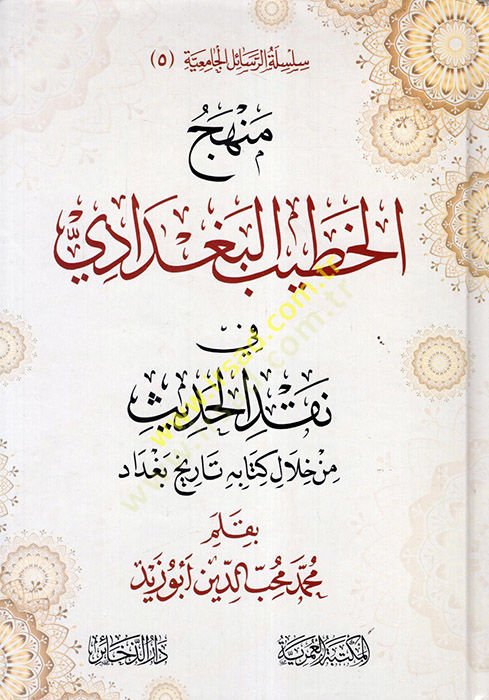 سِلْسِلَةُ الرَّسَائِلِ الْجَامِعِيَّةِ (٥)
مَنْهَجُ
الخَطِيبِ البَغْدَادِيِّ
فِي
نَقْدِ الحَدِيثِ
مِنْ خِلَالِ كِتَابِهِ تَارِيخِ بَغْدَاد
بِقَلَمِ
مُحَمَّد مُحِبّ الدِّين أَبُو زَيْد
المَكْتَبَةُ العُمَرِيَّة
دَارُ الذَّخَائِر